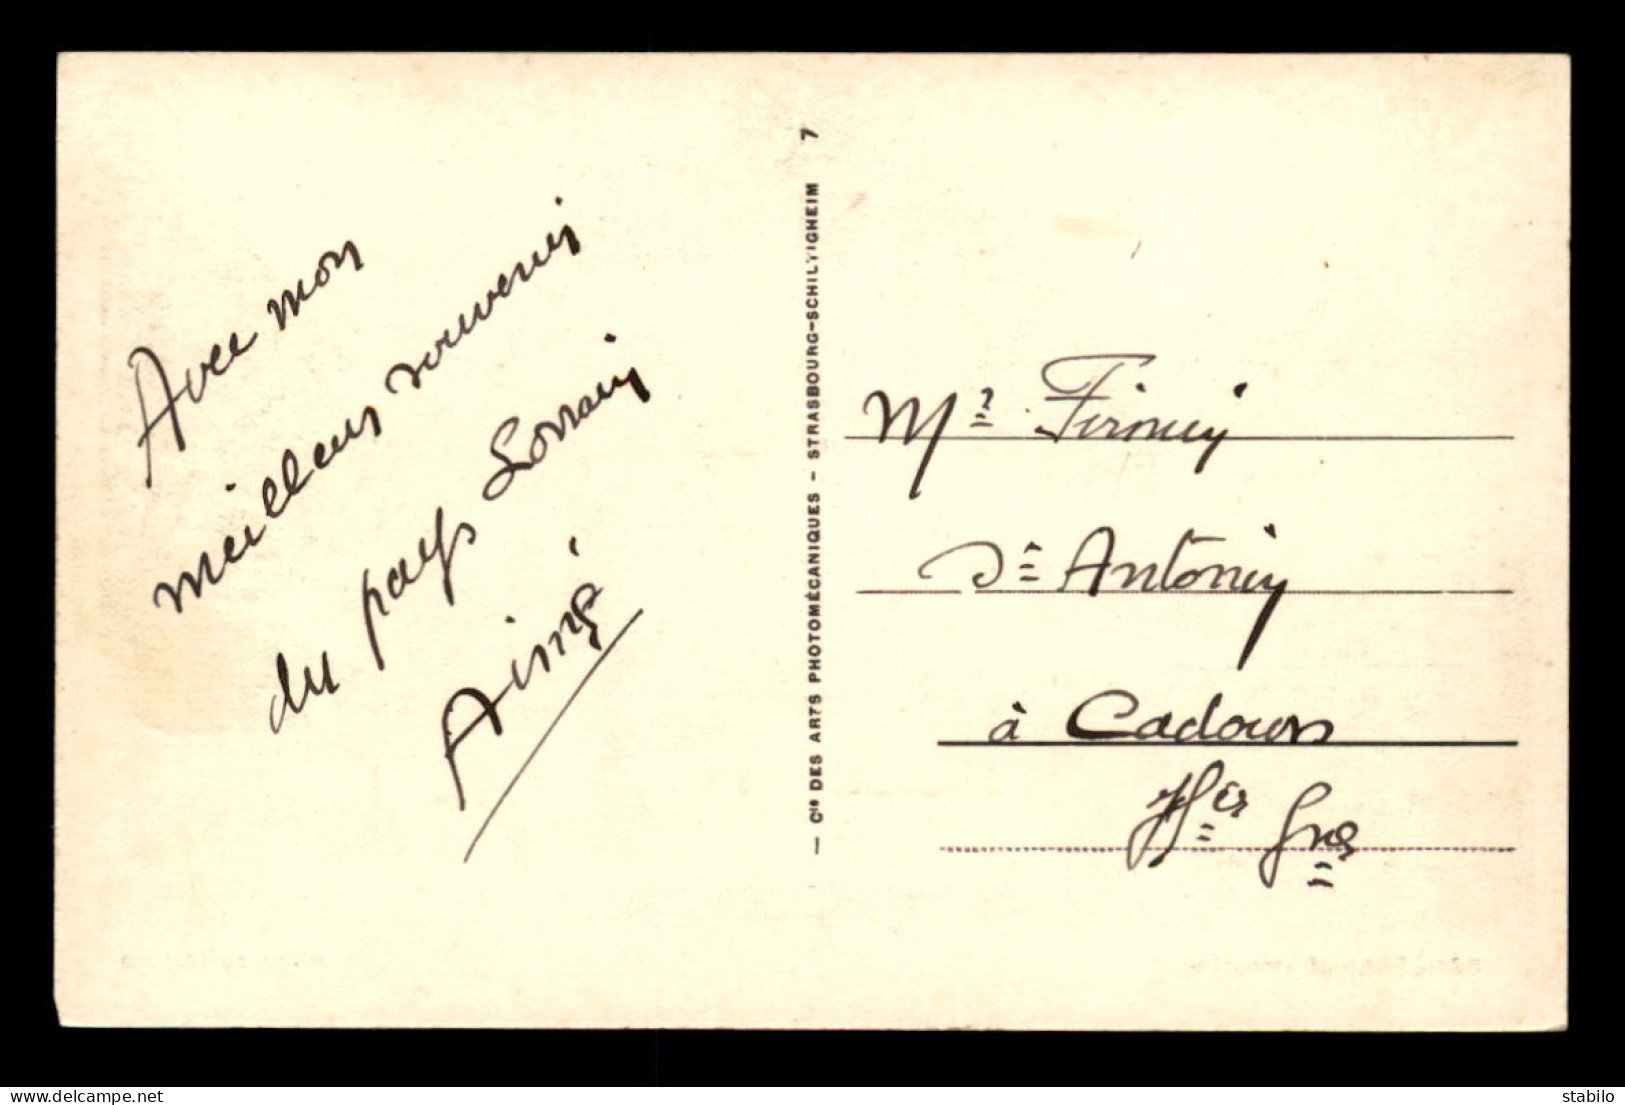 Avec mon
meilleur souvenir
du pays Lorrain
Aimé
— Cie DES ARTS PHOTOMÉCANIQUES - STRASBOURG-SCHILTIGHEIM 7
Mr Firmin
Dr Antonin
à Cadours
Hte Gne
www.delcampe.net
stabilo